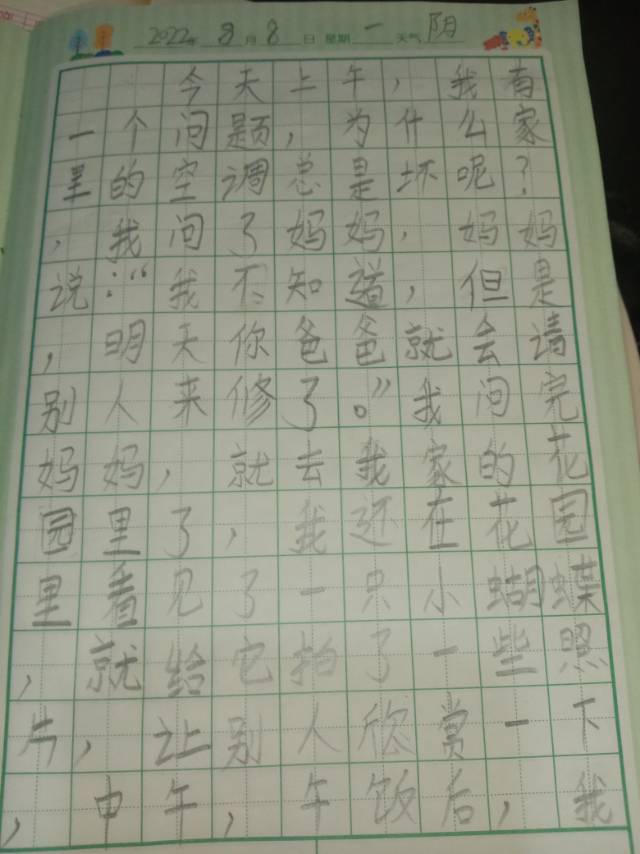 2022年 8月 8日 星期 一 天气 阴
今天上午，我有
一个问题，为什么家
里的空调总是坏呢？
，我问了妈妈，妈妈
说：“我不知道，但是
，明天你爸爸就会请
别人来修了。”我问完
妈妈，就去我家的花
园里了，我还在花园
里看见了一只小蝴蝶
，就给它拍了一些照
片，让别人欣赏一下
，中午，午饭后，我